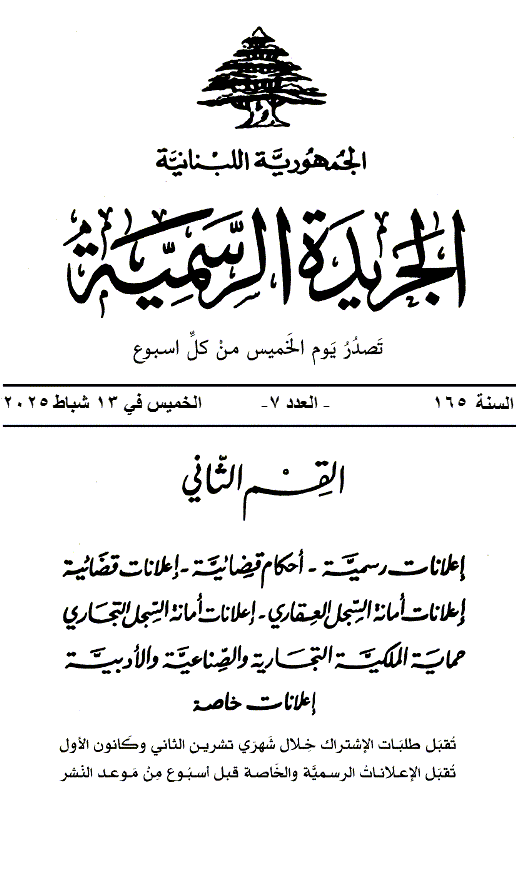 الجمهورية اللبنانية
الجريدة الرسمية
تَصدُرُ يَوم الخَميس منْ كلِّ اسبوع
السنة ١٦٥ - العدد ٧- الخميس في ١٣ شباط ٢٠٢٥
القِسْم الثّاني
إعلانات رسميَّة - أحكام قضائيَّة - إعلانات قضائية
إعلانات أمانة السِّجل العقاري - إعلانات أمانة السِّجل التجاري
حماية الملكيَّة التجارية والصِّناعيَّة والأدبيَّة
إعلانات خاصة
تُقبَل طلبَات الإشتراك خِلال شَهرَي تشرين الثاني وكَانون الأول
تُقبَل الإعلاناتُ الرسميَّة والخَاصة قبل أسبُوع مِنْ مَوعد النَشر